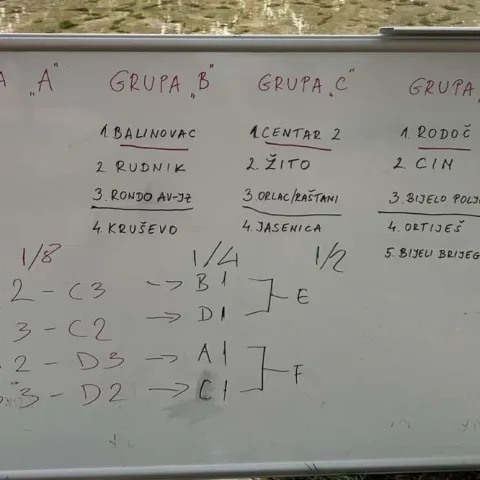 A "A" GRUPA "B" GRUPA "C" GRUPA
1. BALINOVAC 1. CENTAR 2 1. RODOČ
2. RUDNIK 2. ŽITO 2. CIM
3. RONDO AV-JZ 3. ORLAC/RAŠTANI 3. BIJELO POLJ
4. KRUŠEVO 4. JASENICA 4. ORTIJEŠ
5. BIJELI BRIJEG
1/8 1/4 1/2
2 - C3 → B1
E
3 - C2 → D1
2 - D3 → A1
F
3 - D2 → C1